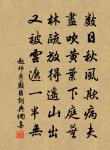 數日秋風欺病夫
盡吹黃葉下庭蕪
林疏放得遙山出
又被雲遮一半無
趙師秀數日